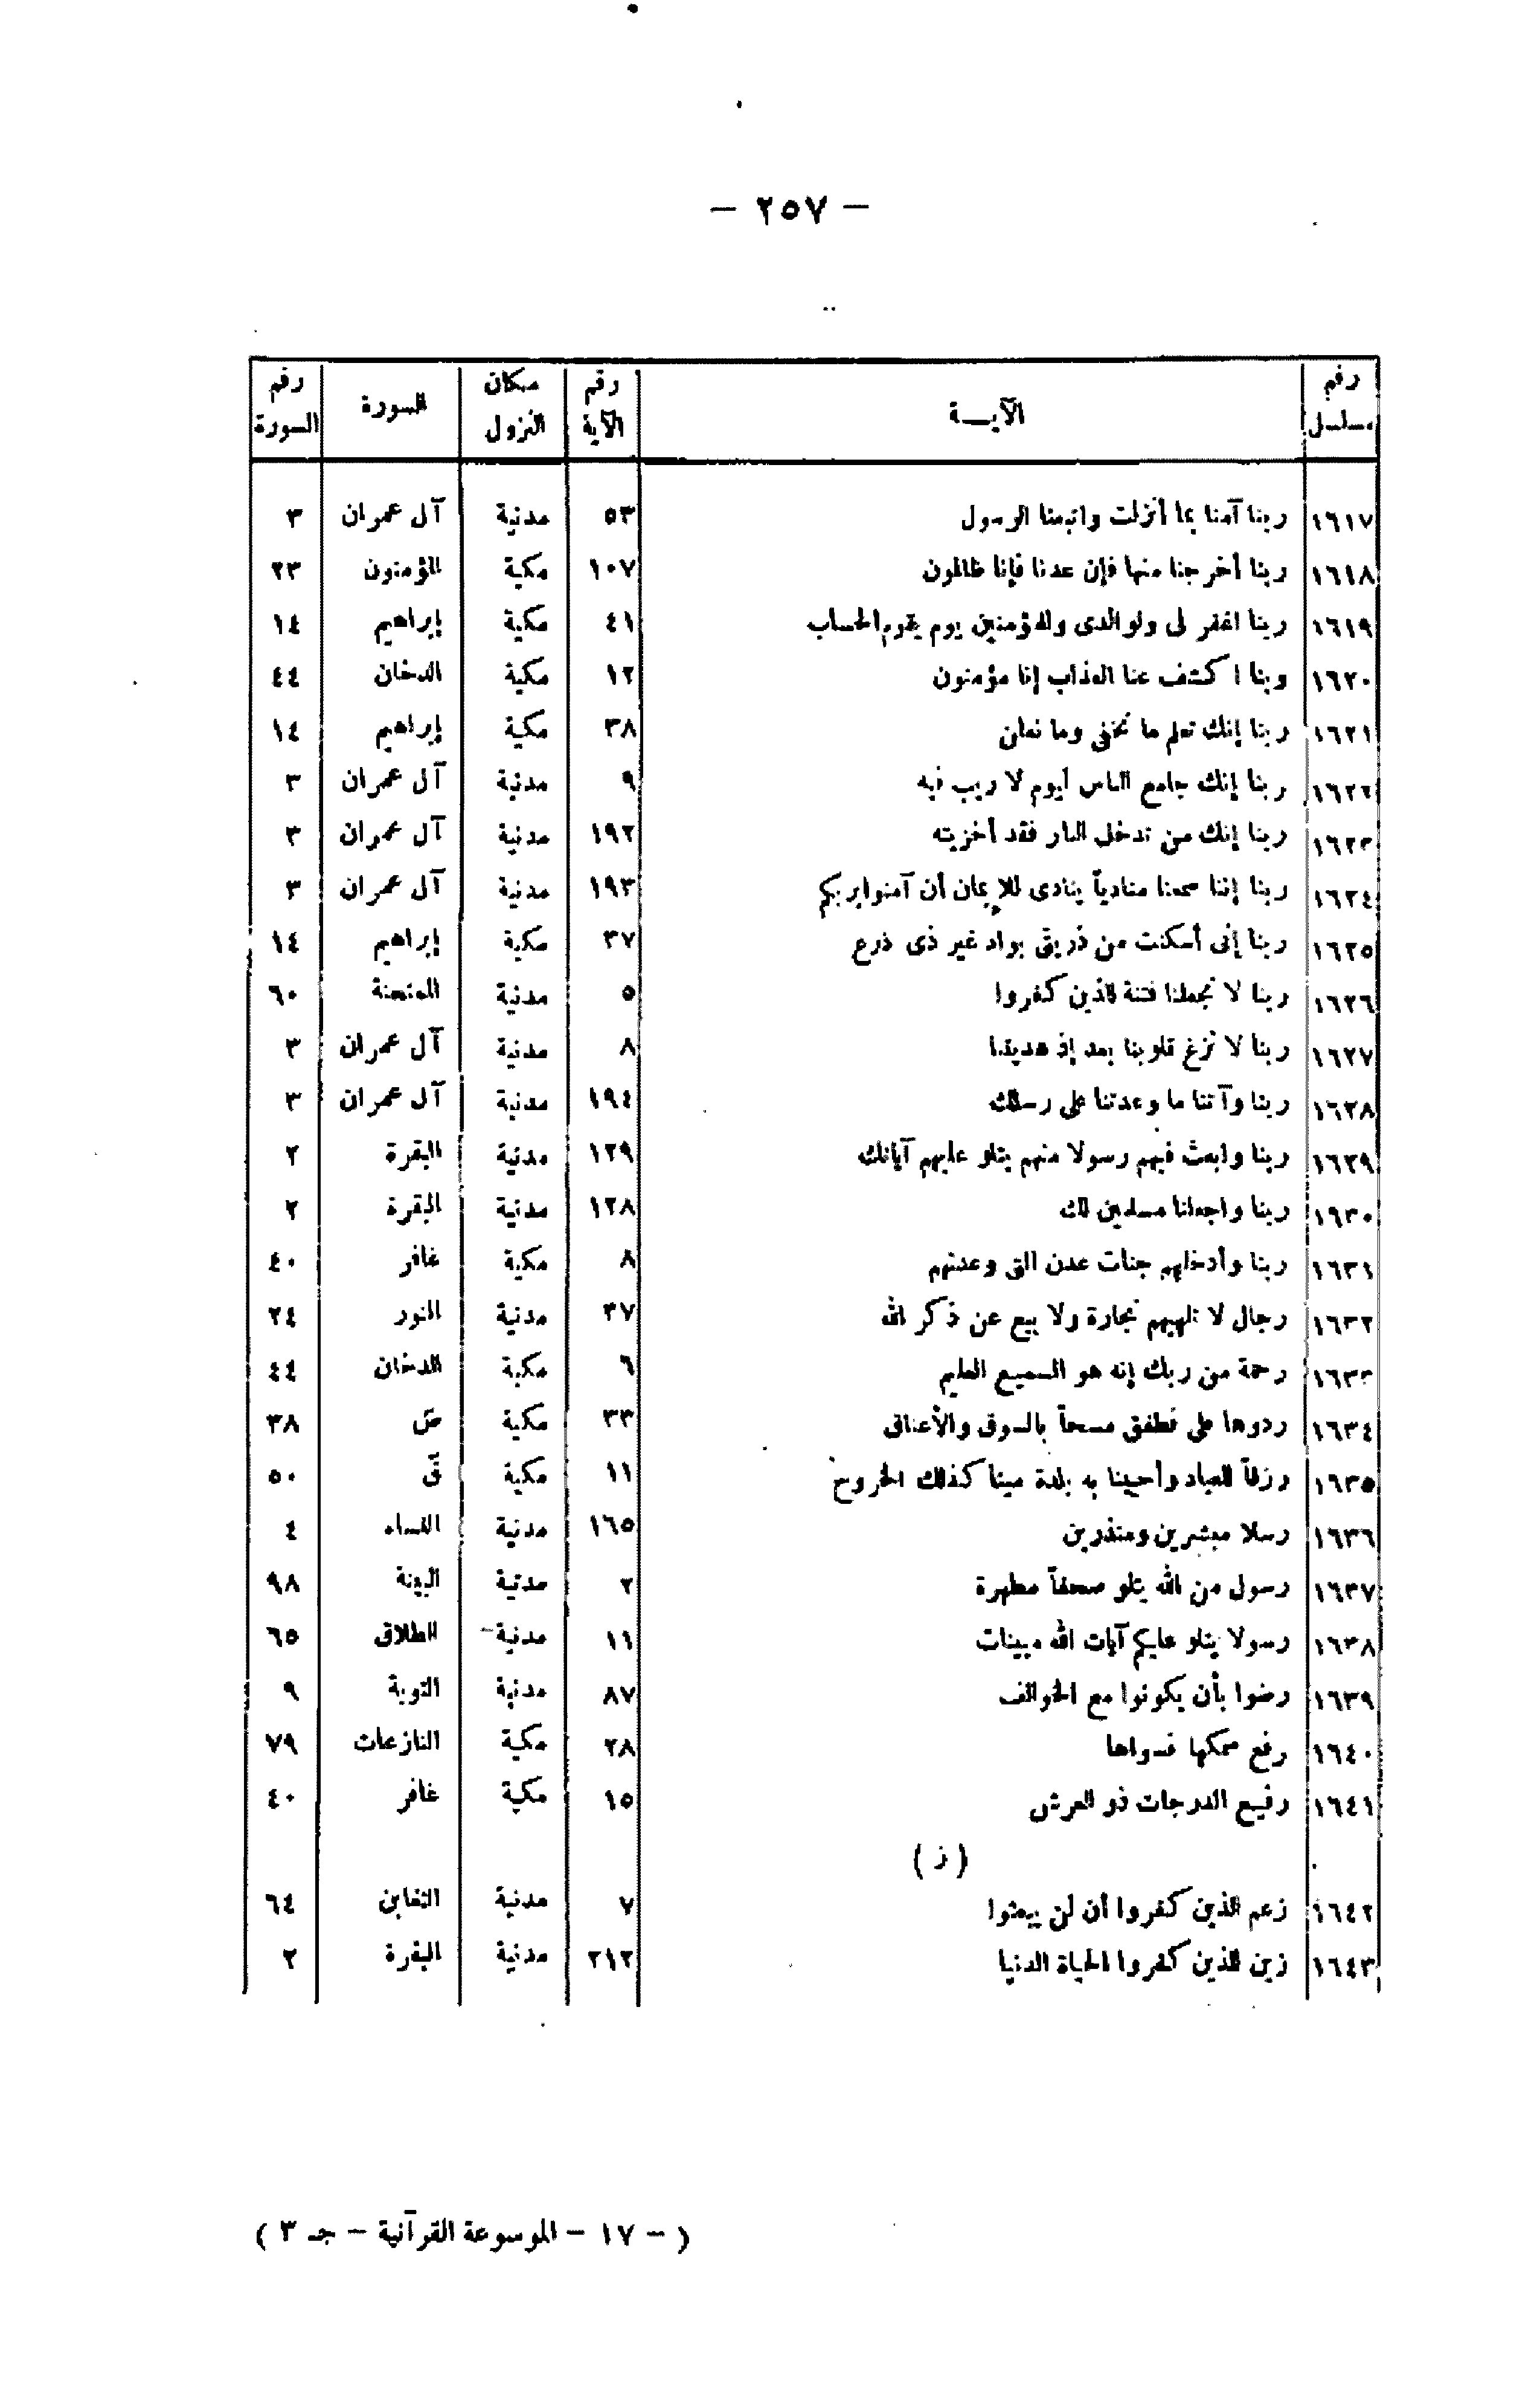 — ٢٥٧ —
رقم مسلسل الآيـــة رقم الآية مكان النزول السورة رقم السورة
١٦١٧ ربنا آمنا بما أنزلت واتبعنا الرسول ٥٣ مدنية آل عمران ٣
١٦١٨ ربنا أخرجنا منها فإن عدنا فإنا ظالمون ١٠٧ مكية المؤمنون ٢٣
١٦١٩ ربنا اغفر لى ولوالدى وللمؤمنين يوم يقوم الحساب ٤١ مكية إبراهيم ١٤
١٦٢٠ ربنا اكشف عنا العذاب إنا مؤمنون ١٢ مكية الدخان ٤٤
١٦٢١ ربنا إنك تعلم ما نخفى وما نعلن ٣٨ مكية إبراهيم ١٤
١٦٢٢ ربنا إنك جامع الناس ليوم لا ريب فيه ٩ مدنية آل عمران ٣
١٦٢٣ ربنا إنك من تدخل النار فقد أخزيته ١٩٢ مدنية آل عمران ٣
١٦٢٤ ربنا إننا سمعنا منادياً ينادى للإيمان أن آمنوا بربكم ١٩٣ مدنية آل عمران ٣
١٦٢٥ ربنا إنى أسكنت من ذريتى بواد غير ذى ذرع ٣٧ مكية إبراهيم ١٤
١٦٢٦ ربنا لا تجعلنا فتنة للذين كفروا ٥ مدنية الممتحنة ٦٠
١٦٢٧ ربنا لا تزغ قلوبنا بعد إذ هديتنا ٨ مدنية آل عمران ٣
١٦٢٨ ربنا وآتنا ما وعدتنا على رسلك ١٩٤ مدنية آل عمران ٣
١٦٢٩ ربنا وابعث فيهم رسولا منهم يتلو عليهم آياتك ١٢٩ مدنية البقرة ٢
١٦٣٠ ربنا واجعلنا مسلمين لك ١٢٨ مدنية البقرة ٢
١٦٣١ ربنا وأدخلهم جنات عدن التى وعدتهم ٨ مكية غافر ٤٠
١٦٣٢ رجال لا تلهيهم تجارة ولا بيع عن ذكر الله ٣٧ مدنية النور ٢٤
١٦٣٣ رحمة من ربك إنه هو السميع العليم ٦ مكية الدخان ٤٤
١٦٣٤ ردوها على فطفق مسحاً بالسوق والأعناق ٣٣ مكية صّ ٣٨
١٦٣٥ رزقاً للعباد وأحيينا به بلدة ميتا كذلك الخروج ١١ مكية قّ ٥٠
١٦٣٦ رسلا مبشرين ومنذرين ١٦٥ مدنية النساء ٤
١٦٣٧ رسول من الله يتلو صحفاً مطهرة ٢ مدنية البينة ٩٨
١٦٣٨ رسولا يتلو عليكم آيات الله مبينات ١١ مدنية الطلاق ٦٥
١٦٣٩ رضوا بأن يكونوا مع الخوالف ٨٧ مدنية التوبة ٩
١٦٤٠ رفع سمكها فسواها ٢٨ مكية النازعات ٧٩
١٦٤١ رفيع الدرجات ذو العرش ١٥ مكية غافر ٤٠
( ز )
١٦٤٢ زعم الذين كفروا أن لن يبعثوا ٧ مدنية التغابن ٦٤
١٦٤٣ زين للذين كفروا الحياة الدنيا ٢١٢ مدنية البقرة ٢
( — ١٧ — الموسوعة القرآنية — جـ ٣ )